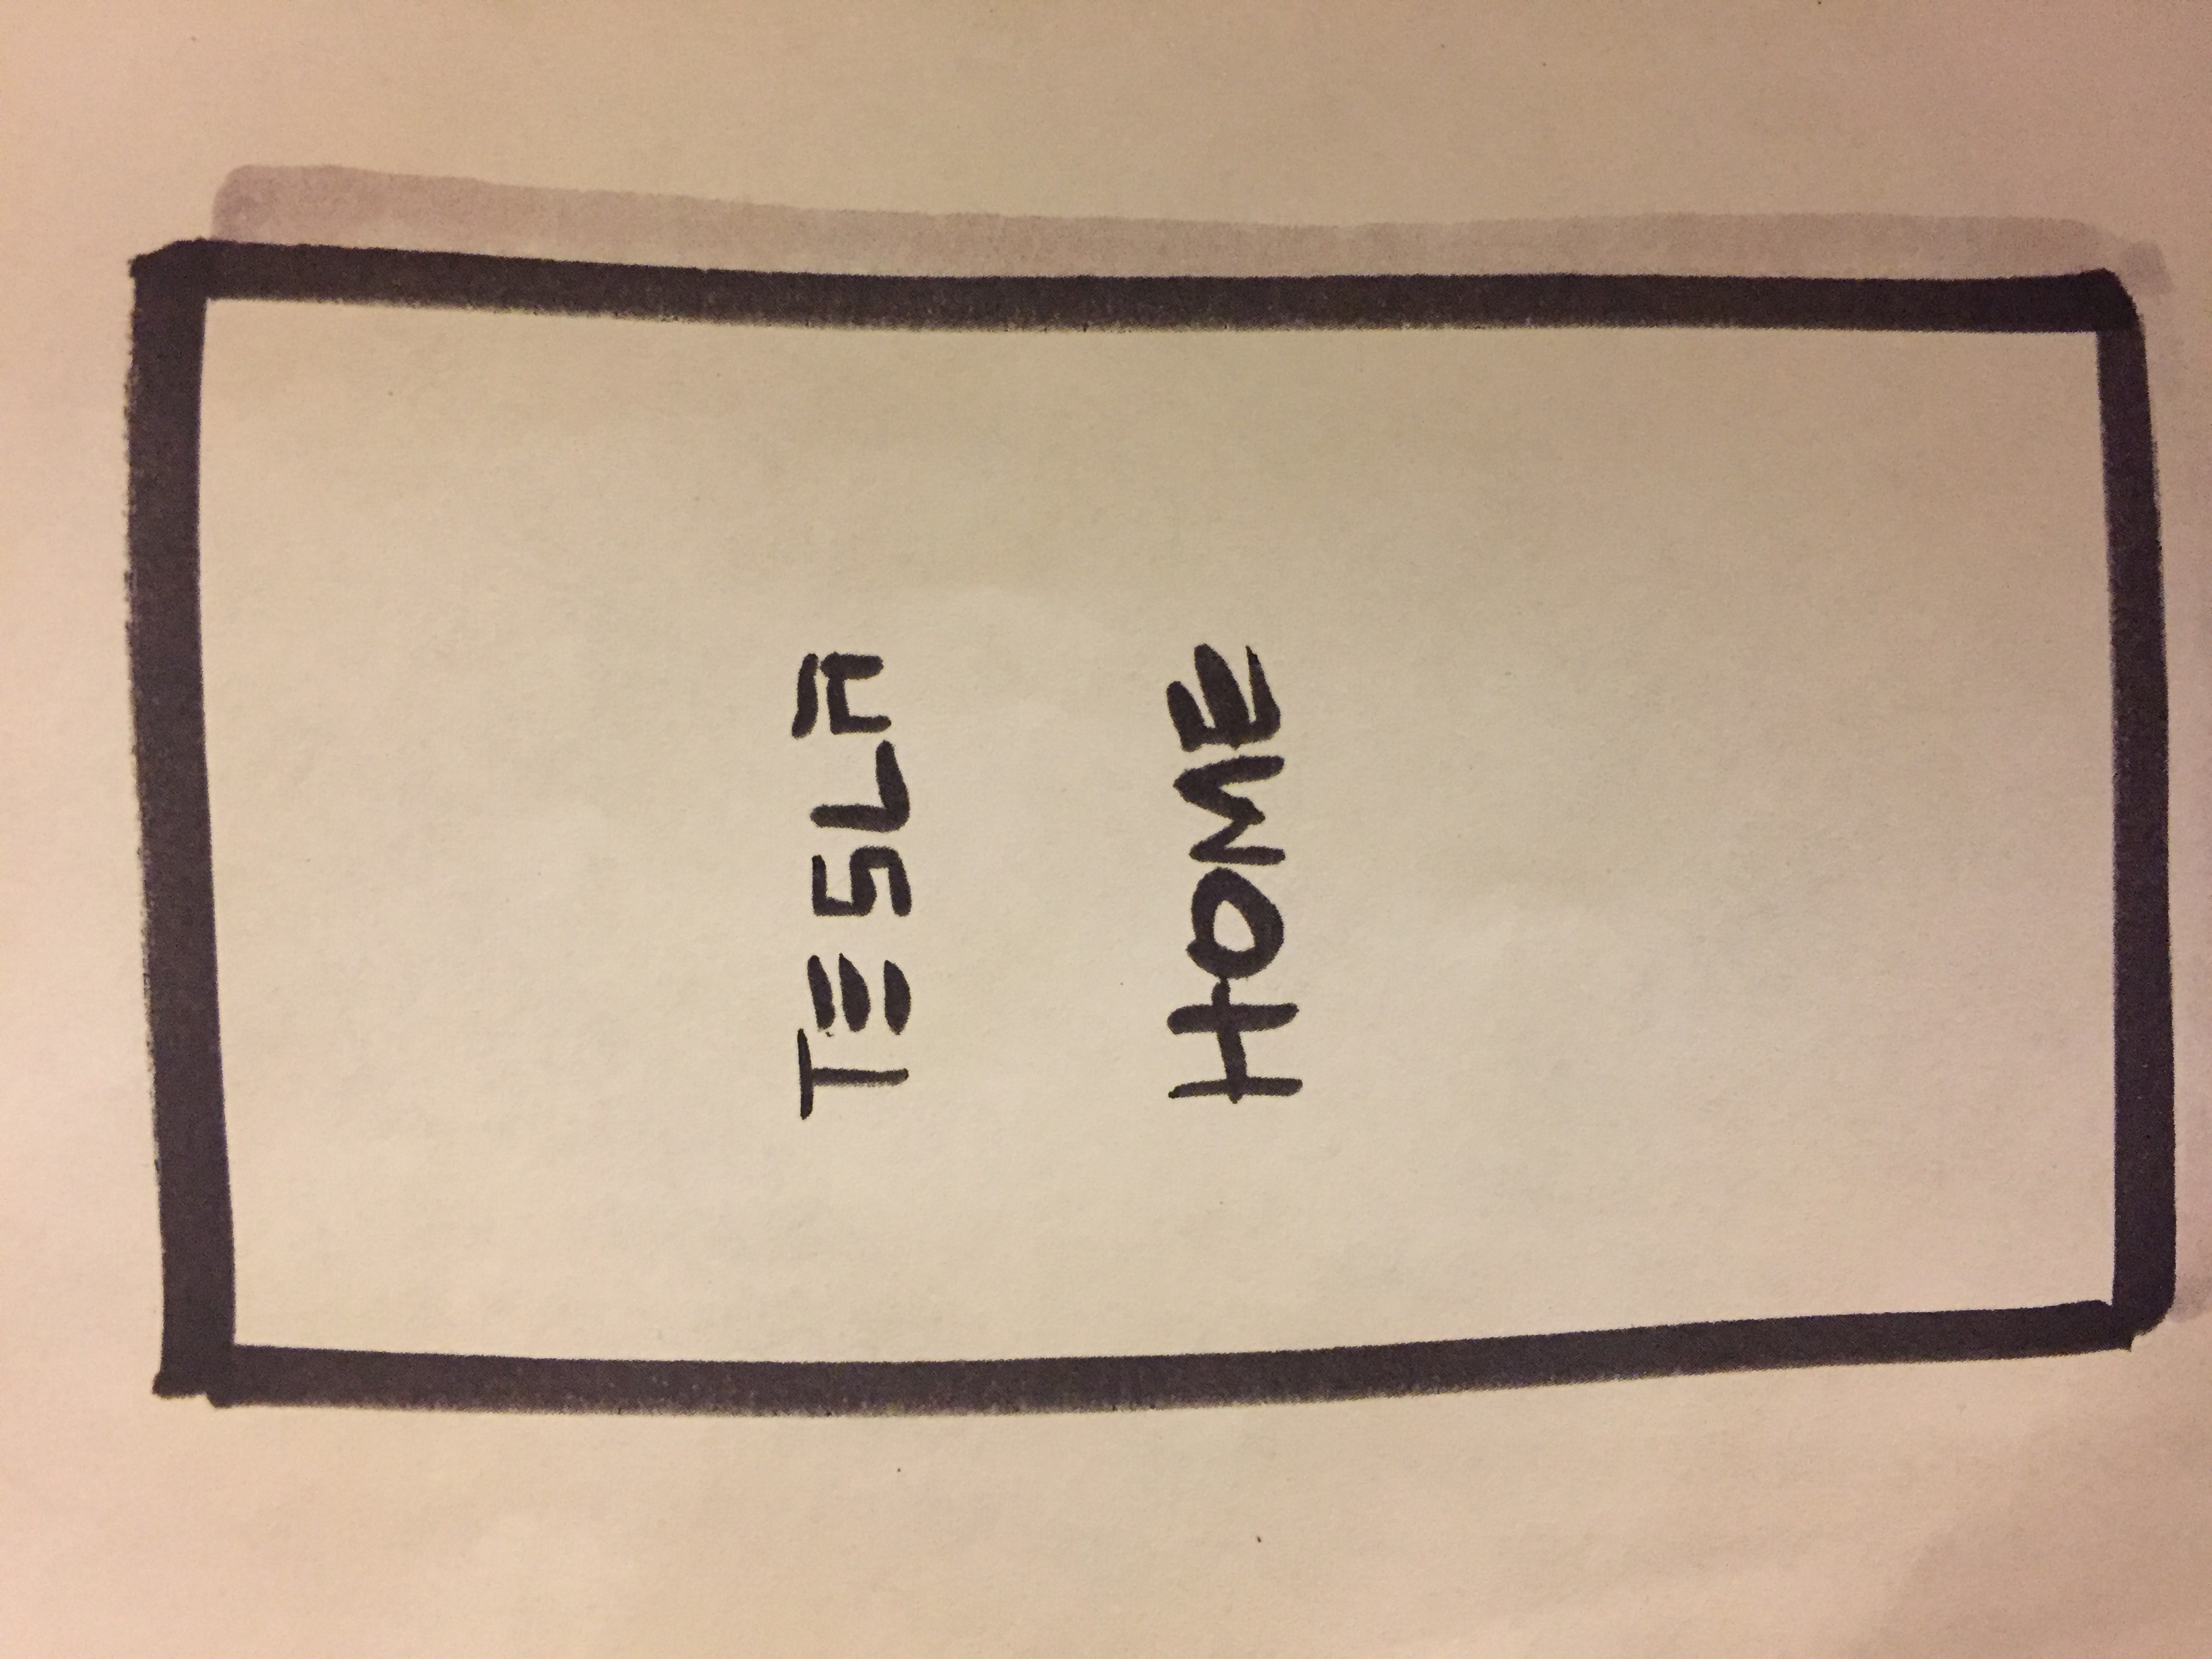 TESLA
HOME